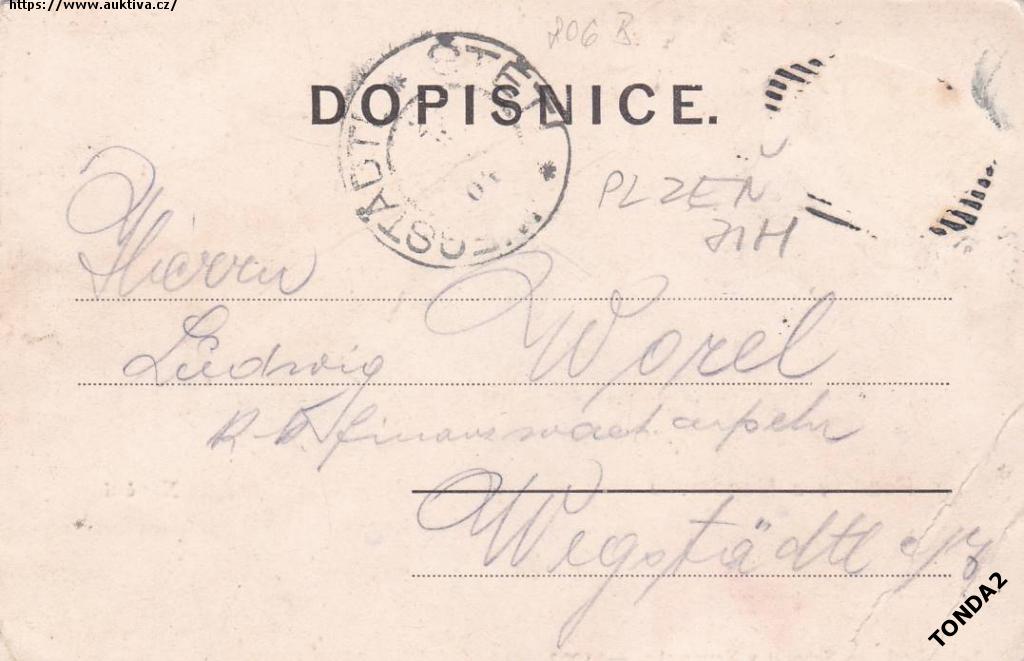 https://www.auktiva.cz/
206 B.
DOPISNICE.
WEGSTÄDTL
PLZEŇ
JIH
Herrn
Ludwig Worel
k. k. finanzwach
Wegstädtl a/
TONDA2